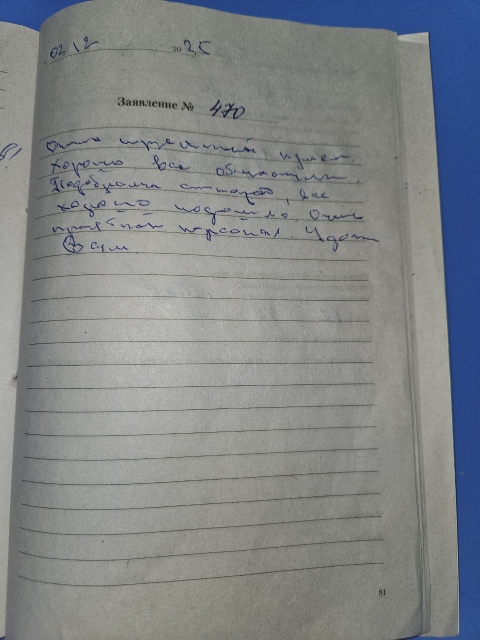 02.12 2025
Заявление № 470
Очень приятный прием.
Хорошо все объяснили.
все
хорошо подошло. Очень
приятный персонал. Удачи
Вам
81